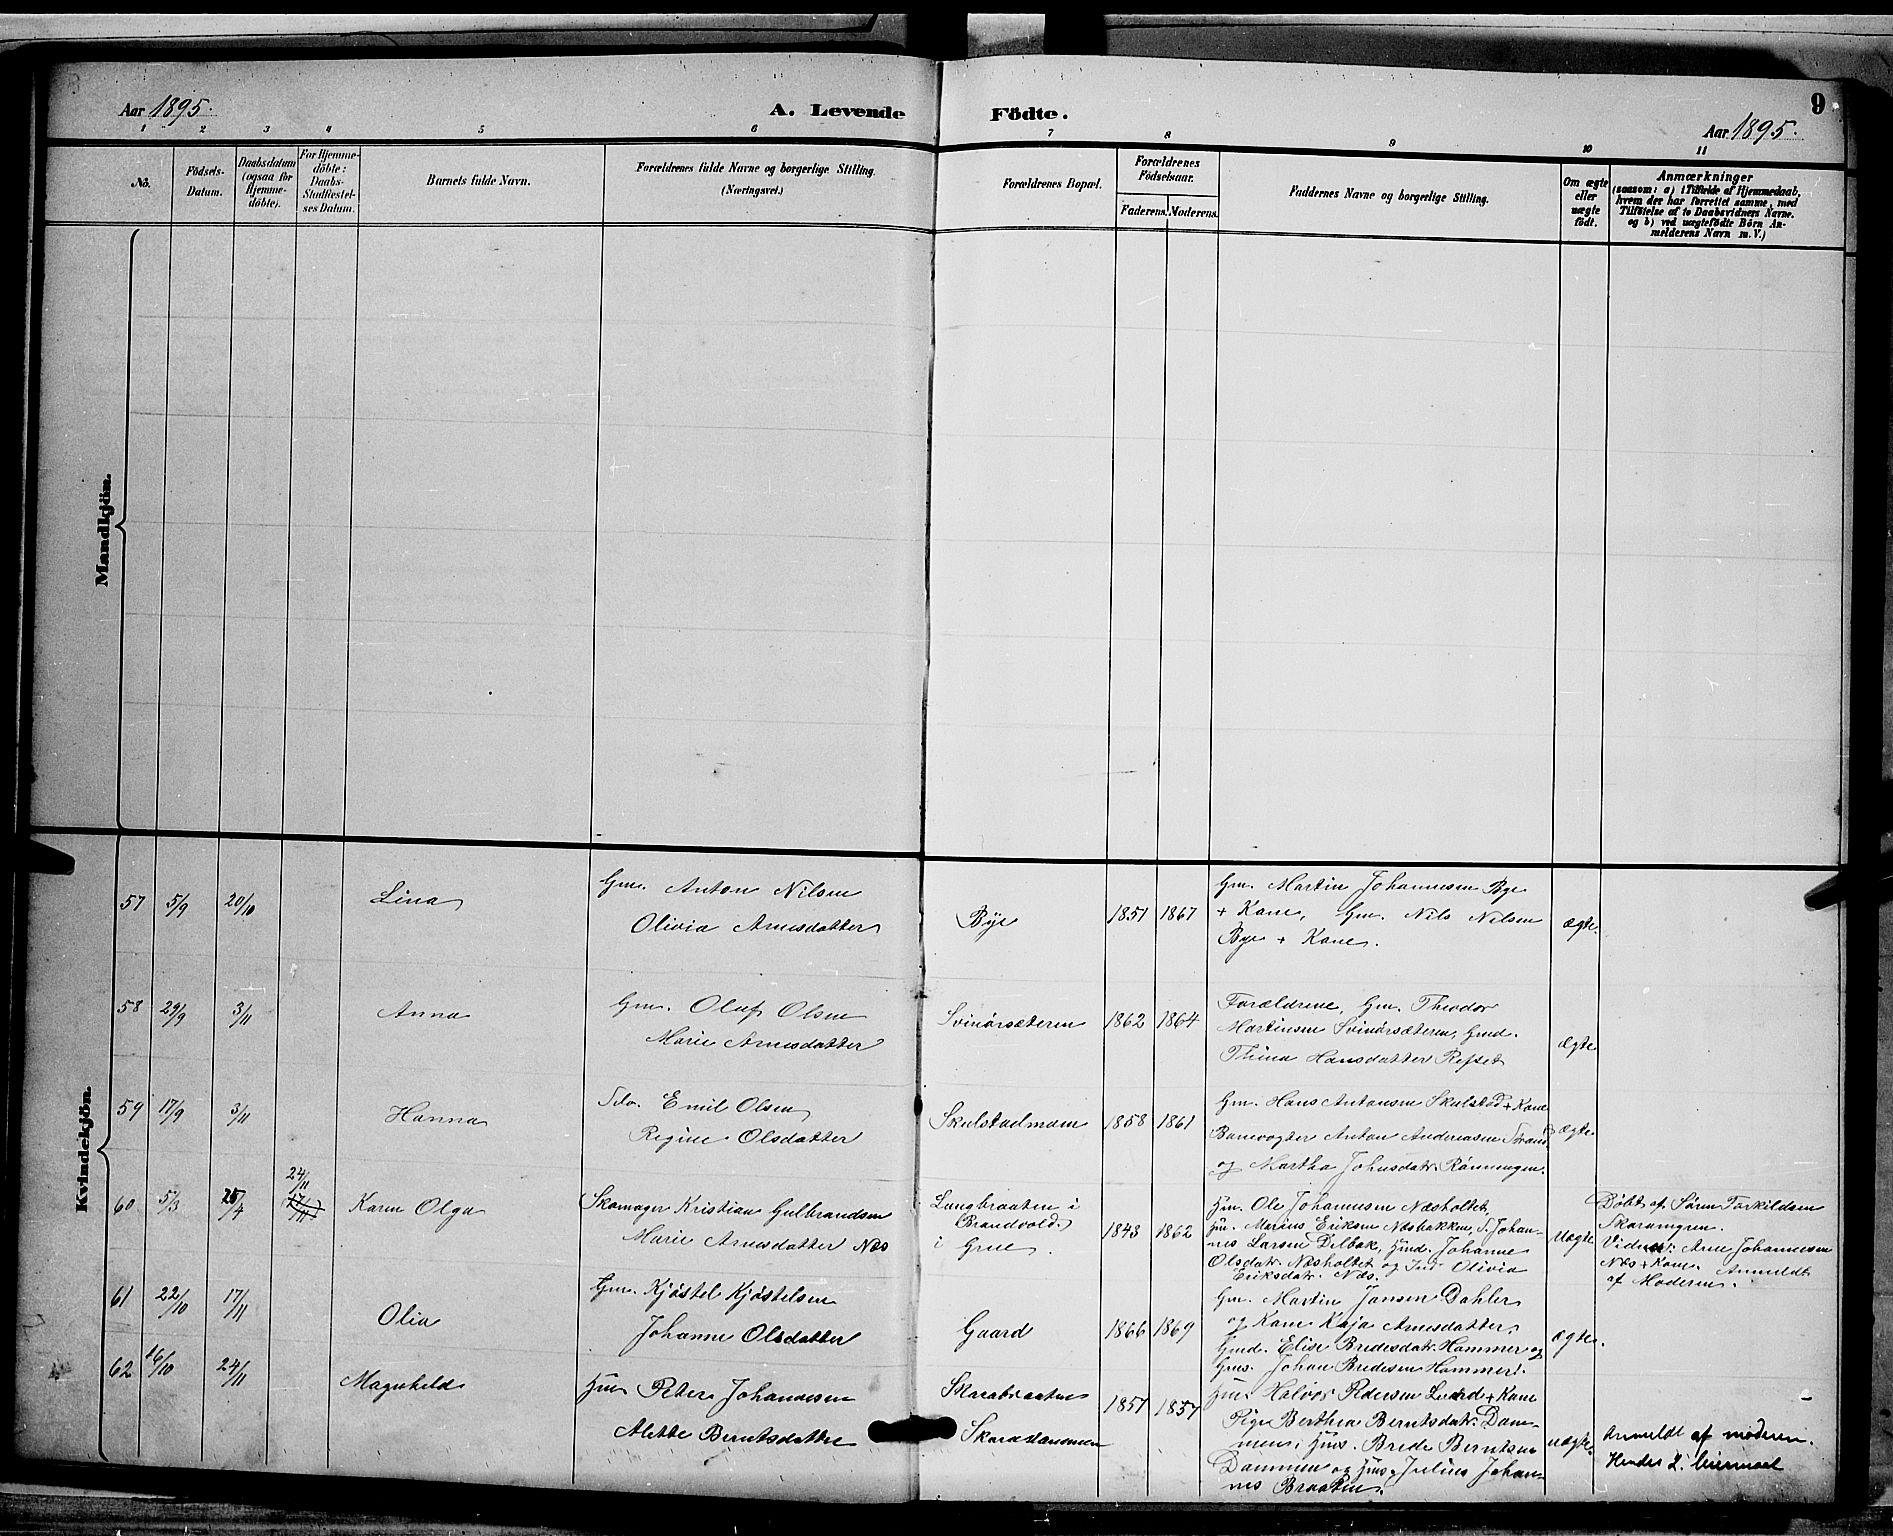 9
Aar 1895.
A. Levende
Födte.
Aar 1895.
1 2 3 4 5 6 7 8 9 10 11
No.
Födsels-
Datum.
Daabsdatum
(ogsaa for
Hjemme-
döbte).
For Hjemme-
döbte:
Daabs-
Stadfæstel-
ses Datum.
Barnets fulde Navn.
Forældrenes fulde Navne og borgerlige Stilling.
(Næringsvei.)
Forældrenes Bopæl.
Forældrenes
Födselsaar.
Faderens. Moderens.
Faddernes Navne og borgerlige Stilling.
Om ægte
eller
uægte
födt.
Anmærkninger
(saasom: a) i Tilfælde af Hjemmedaab,
hvem der har forrettet samme, med
Tilföielse af to Daabsvidners Navne,
og b) ved uægtefödte Börn An-
melderens Navn m. V.)
Mandkjön.
Kvindekjön.
57 5/9 20/10
Lina
Gm. Anton Nilsen
Olivia Arnesdatter
Bye
1851 1867
Gm. Martin Johannesen Bye
+ Kane, Gm. Nils Nilsen
Bye + Kane.
ægte.
58 29/9 3/11
Anna
Gm. Olaf Olsen
Marie Arnesdatter
Svinörsæteren
1862 1864
Forældrene, Gm. Theodor
Martinsen Svinörsæteren, Gmd.
Thina Hansdatter Refset
ægte
59 17/9 3/11
Hanna
Selv. Emil Olsen
Regine Olsdatter
Skulstadmoen
1858 1861
Gm. Hans Antonsen Skulstad + Kane
Banevogter Anton Andreasen
og Martha Johnsdatr. Rönningen.
ægte
60 5/3 25/4 24/11
17/11
Karen Olga
Skomager Kristian Gulbrandsen
Marie Arnesdatter Næs
Langbraaten i
Brandvold
i Grue.
1843 1862
Hm. Ole Johannesen Næsholtet,
Hm. Marius Eriksen Næsbakken, S. Johan-
nes Larsen Dilbak, Hmd. Johanne
Olsdatr. Næsholtet og Ind. Olivia
Eriksdatr. Næs.
Uægte
Döbt af Sören Torkildsen
Skaramyren.
Vidner: Arne Johannesen
Næs + Kane. Anmeldt
af Moderen.
61 22/10 17/11
Olia
Gm. Kjöstel Kjöstelsen
Johanne Olsdatter
Gaard
1866 1869
Gm. Martin Jansen Dahler
og Kane Kaja Arnesdatter,
Gmd. Elise Bredesdatr. Hammer og
Gms. Johan Bredesen Hammer.
ægte.
62 16/10 24/11
Magnhild
Hm. Peter Johannesen
Alette Berntsdatter
Skarabraaten
Skarastammen
1851 1857
Hm. Halvor Pedersen Lund + Kane
Pige Berthea Berntsdatr. Dam-
men, Hms. Brede Berntsen
Dammen og Hms. Julius Johan-
nes Braaten.
uægte.
Anmeldt af moderen.
Hendes 2. leiermaal